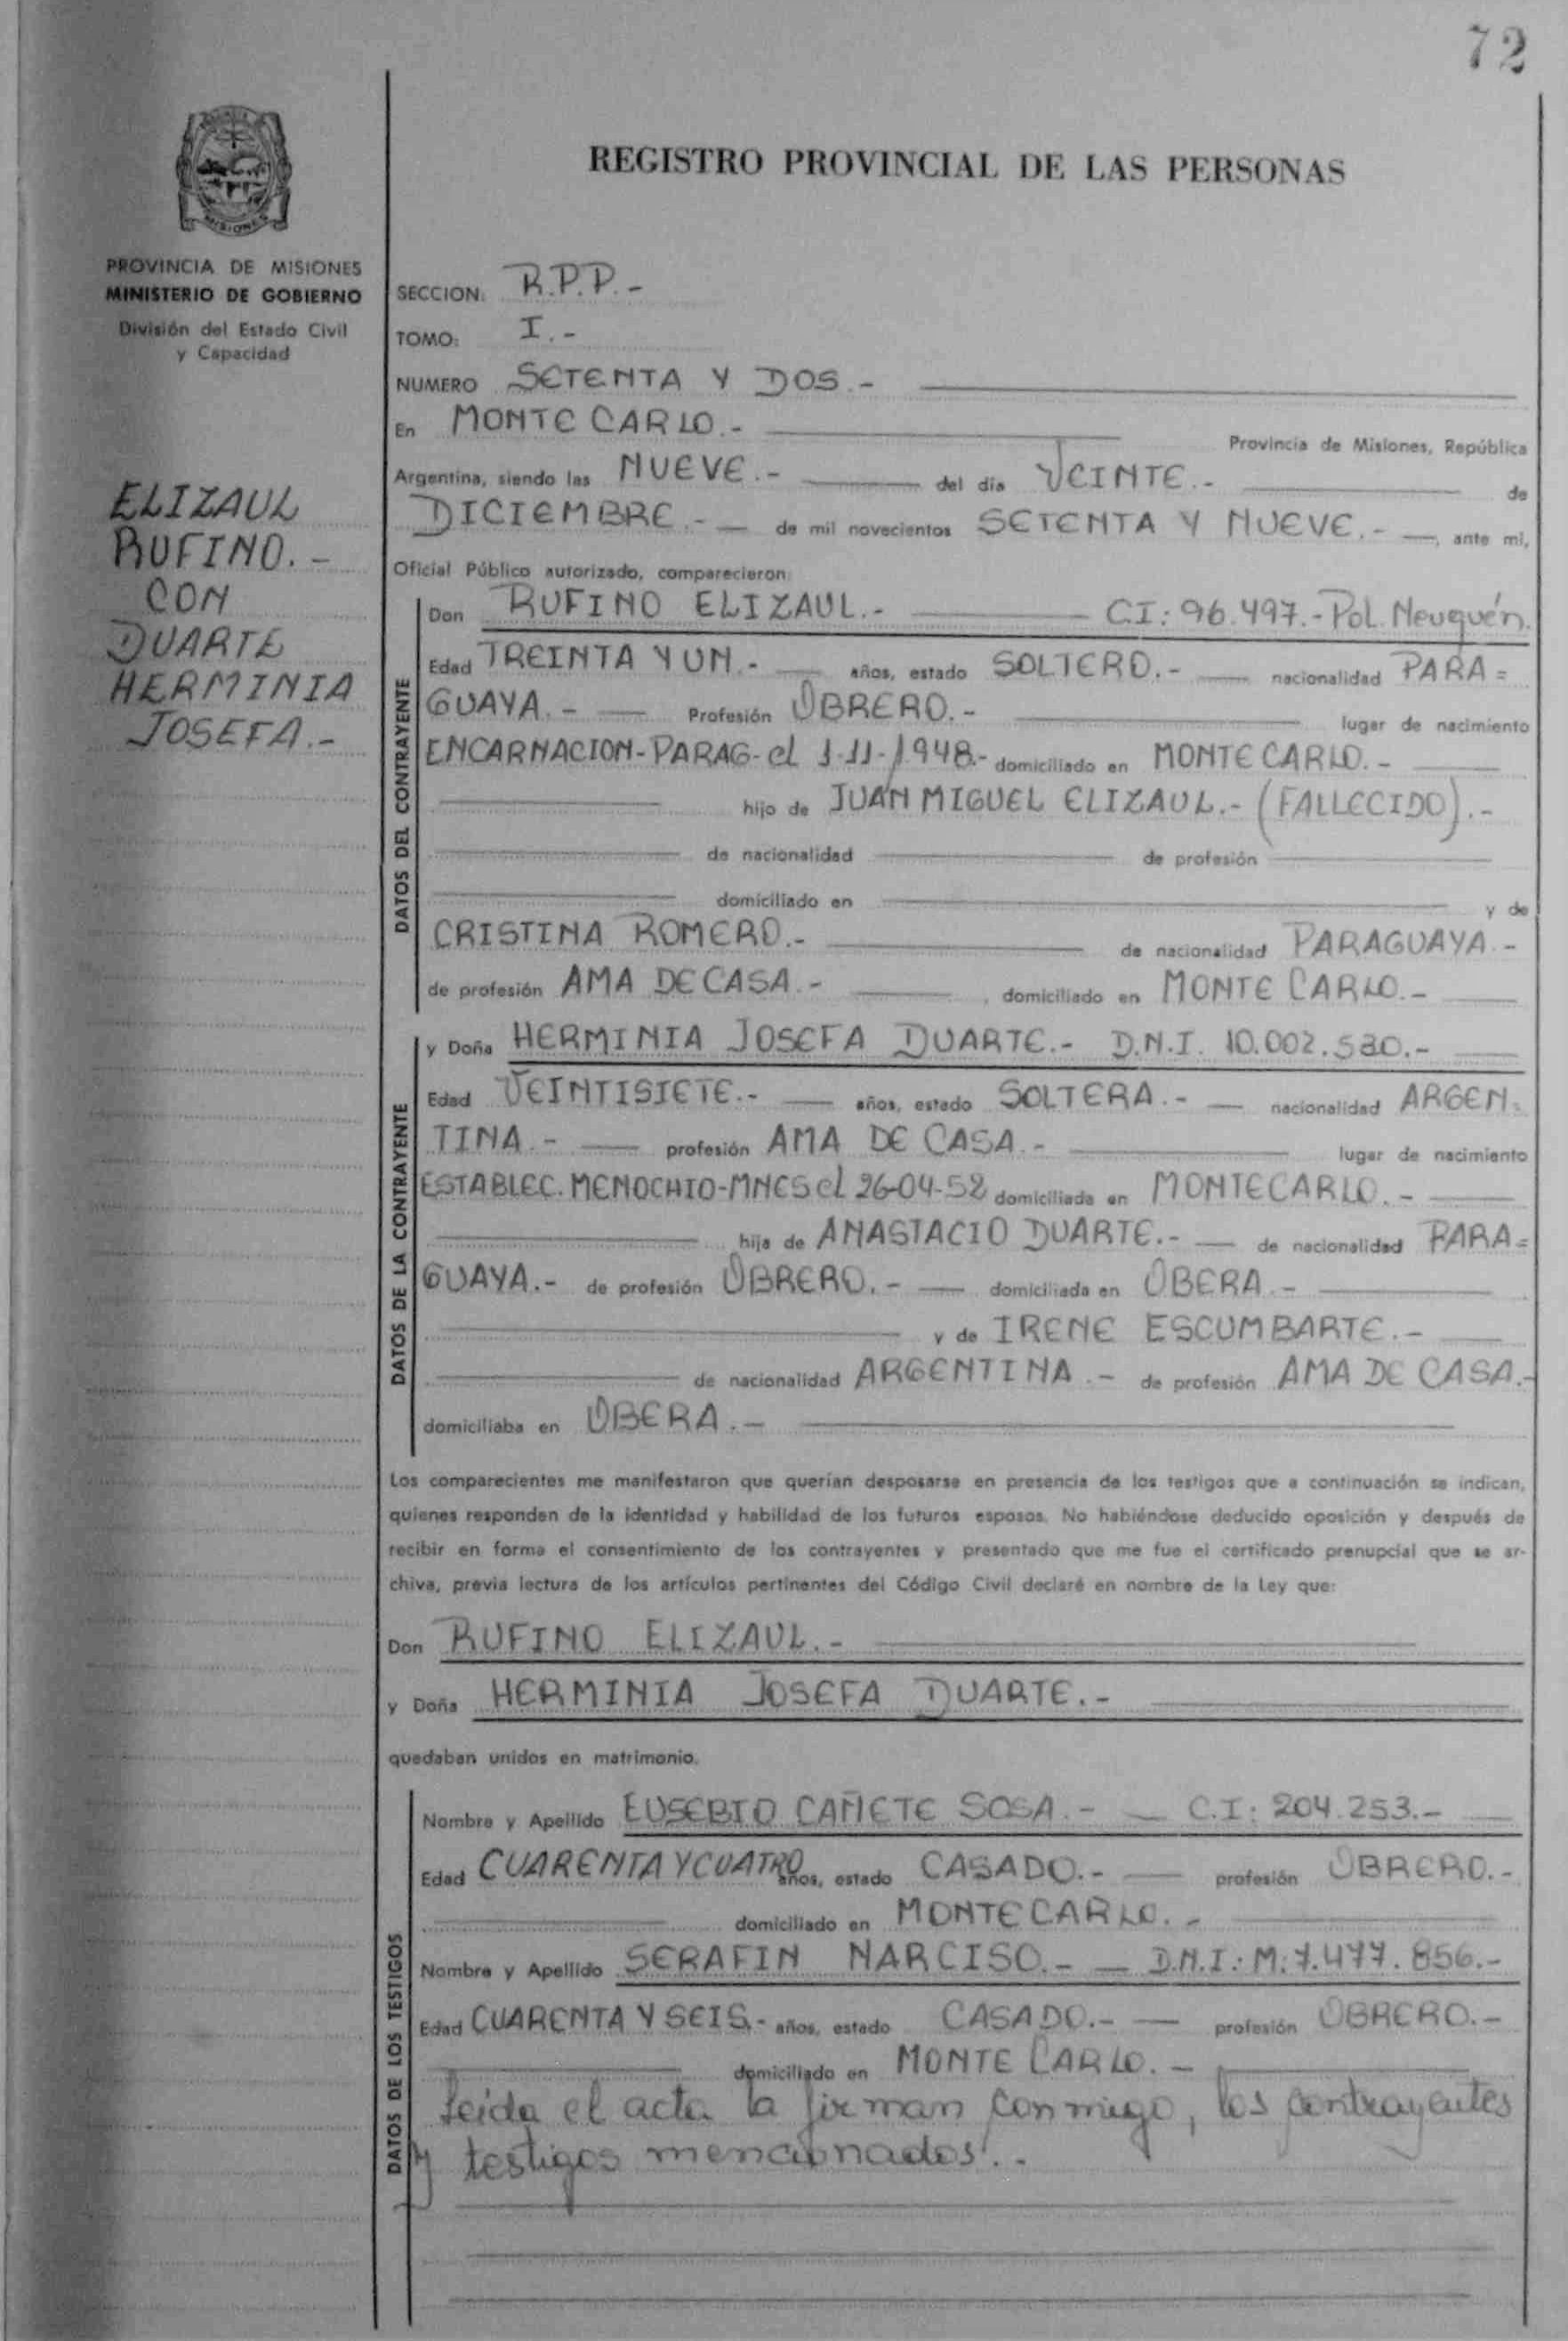 72
REGISTRO PROVINCIAL DE LAS PERSONAS
MISIONES
PROVINCIA DE MISIONES
MINISTERIO DE GOBIERNO
División del Estado Civil
y Capacidad
ELIZAUL
RUFINO.-
CON
DUARTE
HERMINIA
JOSEFA.-
SECCION: R.P.P.-
TOMO: I.-
NUMERO SETENTA Y DOS.-
En MONTECARLO.- Provincia de Misiones, República
Argentina, siendo las NUEVE.- del día VEINTE.- de
DICIEMBRE.- de mil novecientos SETENTA Y NUEVE.-, ante mi,
Oficial Público autorizado, comparecieron:
DATOS DEL CONTRAYENTE
Don RUFINO ELIZAUL.- C.I: 96.497.- Pol. Neuquén.
Edad TREINTA Y UN.- años, estado SOLTERO.- nacionalidad PARA=
GUAYA.- Profesión OBRERO.- lugar de nacimiento
ENCARNACION-PARAG- el 1-11-1948.- domiciliado en MONTECARLO.-
hijo de JUAN MIGUEL ELIZAUL.- (FALLECIDO).-
de nacionalidad de profesión
domiciliado en y de
CRISTINA ROMERO.- de nacionalidad PARAGUAYA.-
de profesión AMA DE CASA.-, domiciliado en MONTE CARLO.-
DATOS DE LA CONTRAYENTE
y Doña HERMINIA JOSEFA DUARTE.- D.N.I. 10.002.530.-
Edad VEINTISIETE.- años, estado SOLTERA.- nacionalidad ARGEN=
TINA.- profesión AMA DE CASA.- lugar de nacimiento
ESTABLEC. MENOCHIO-MNES el 26-04-52 domiciliada en MONTECARLO.-
hija de ANASTACIO DUARTE.- de nacionalidad PARA=
GUAYA.- de profesión OBRERO.- domiciliada en OBERA.-
y de IRENE ESCUMBARTE.-
de nacionalidad ARGENTINA.- de profesión AMA DE CASA.-
domiciliaba en OBERA.-
Los comparecientes me manifestaron que querían desposarse en presencia de los testigos que a continuación se indican,
quienes responden de la identidad y habilidad de los futuros esposos. No habiéndose deducido oposición y después de
recibir en forma el consentimiento de los contrayentes y presentado que me fue el certificado prenupcial que se ar-
chiva, previa lectura de los artículos pertinentes del Código Civil declaré en nombre de la Ley que:
Don RUFINO ELIZAUL.-
y Doña HERMINIA JOSEFA DUARTE.-
quedaban unidos en matrimonio.
DATOS DE LOS TESTIGOS
Nombre y Apellido EUSEBIO CAÑETE SOSA.- C.I: 204.253.-
Edad CUARENTA Y CUATRO años, estado CASADO.- profesión OBRERO.-
domiciliado en MONTECARLO.-
Nombre y Apellido SERAFIN NARCISO.- D.N.I.: M: 7.477.856.-
Edad CUARENTA Y SEIS.- años, estado CASADO.- profesión OBRERO.-
domiciliado en MONTE CARLO.-
Leída el acta la firman conmigo, los contrayentes
y testigos mencionados.-